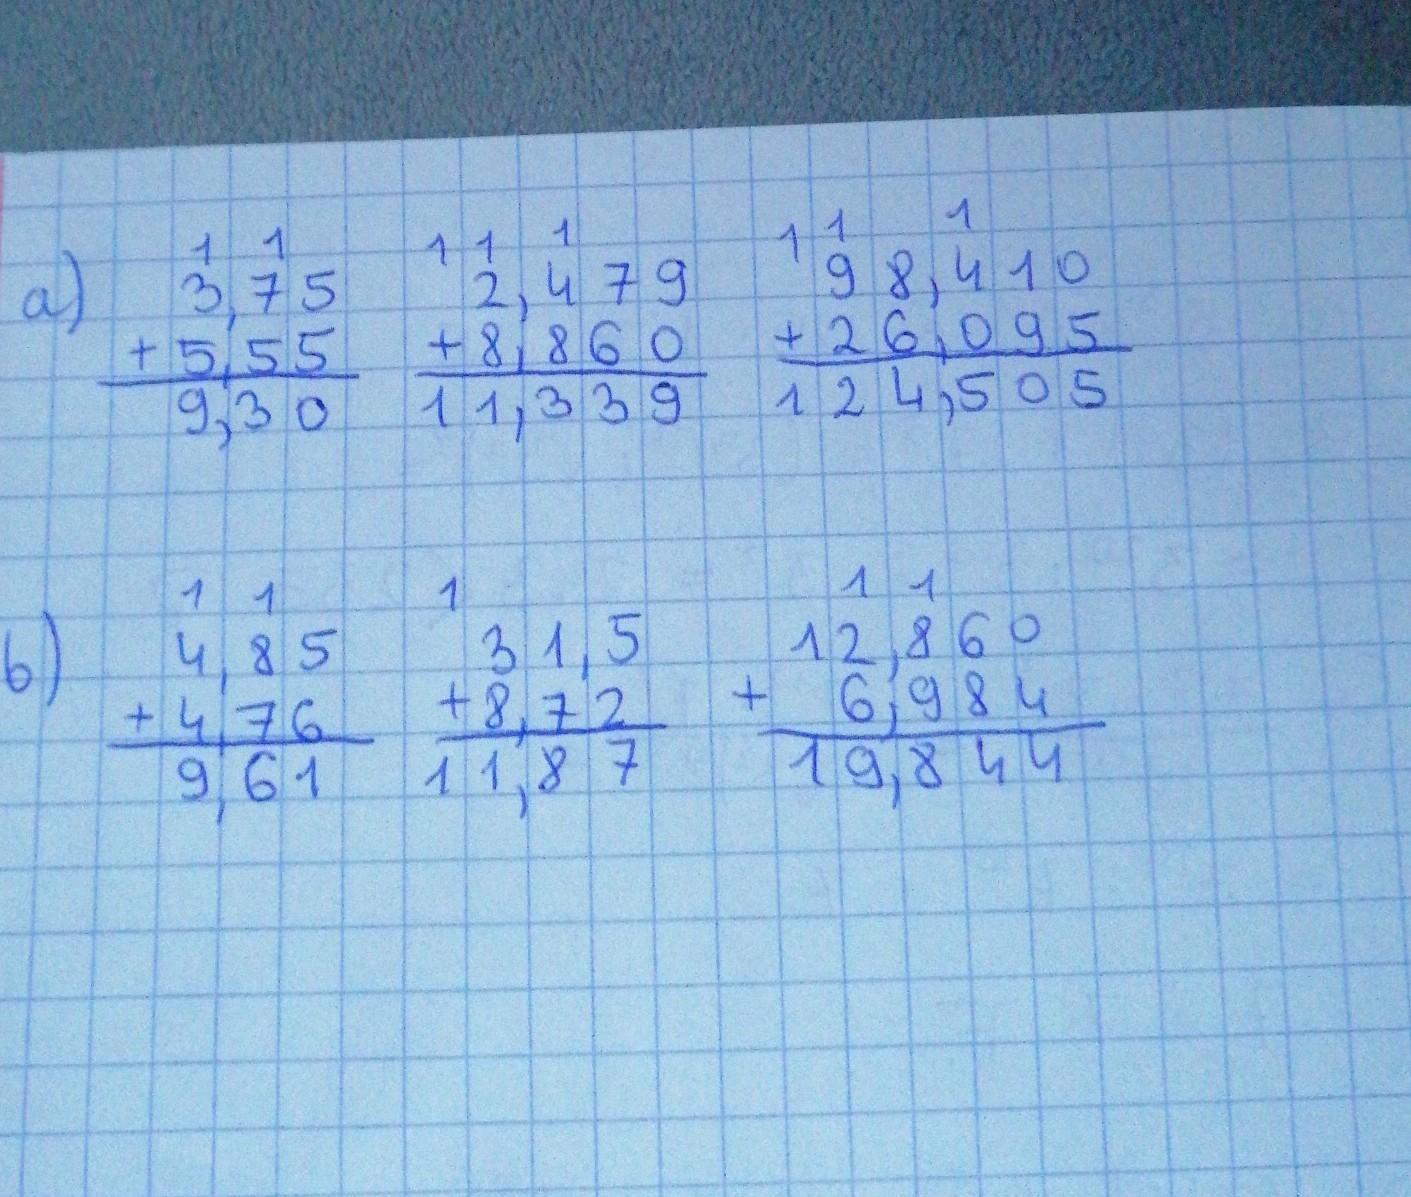 1 1 1 1 1 1 1 1
a) 3,75 2,479 98,410
+ 5,55 + 8,860 + 26,095
9,30 11,339 124,505
1 1 1 1 1
b) 4,85 31,5 12,860
+ 4,76 + 8,72 + 6,984
9,61 11,87 19,844